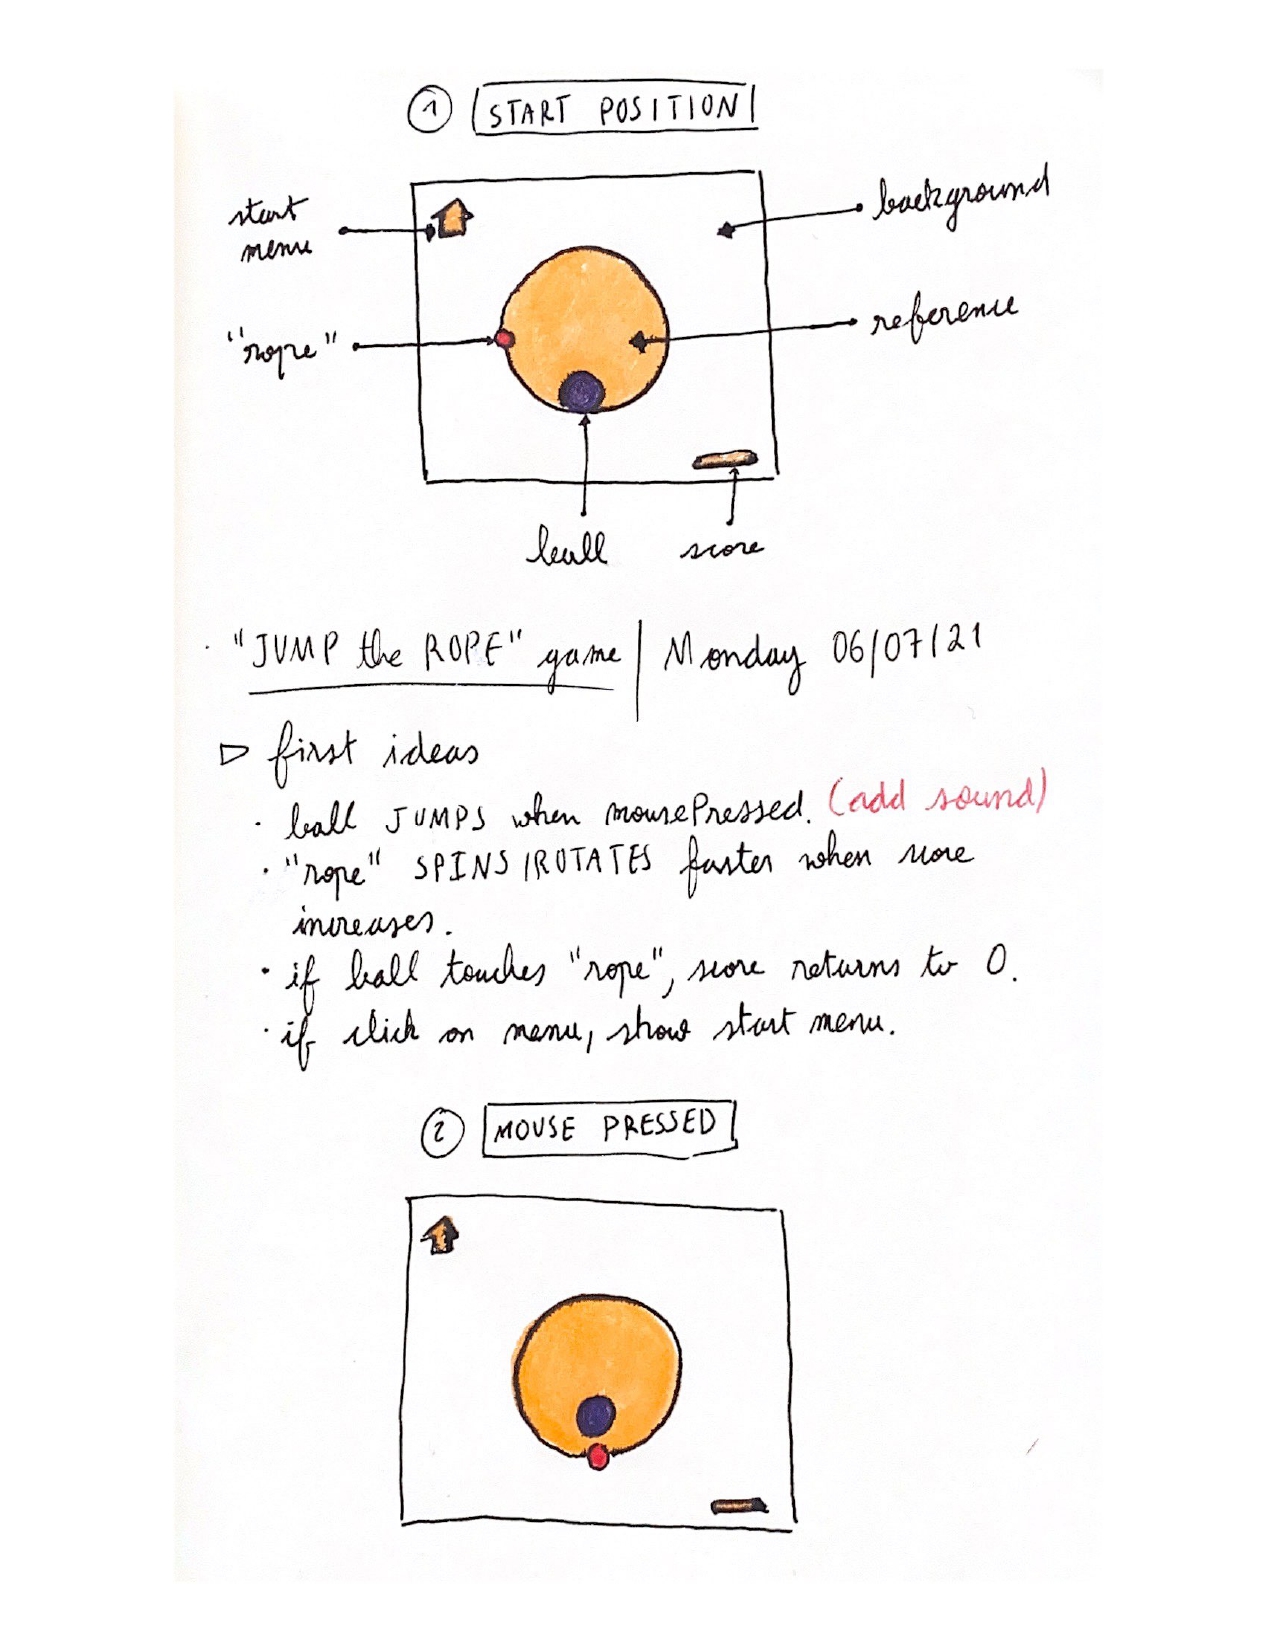 1 START POSITION
start
menu
background
"rope"
reference
ball
score
"JUMP the ROPE" game | Monday 06/07/21
▷ first ideas
· ball JUMPS when mousePressed. (add sound)
· "rope" SPINS/ROTATES faster when score
increases.
· if ball touches "rope", score returns to 0.
· if click on menu, show start menu.
2 MOUSE PRESSED